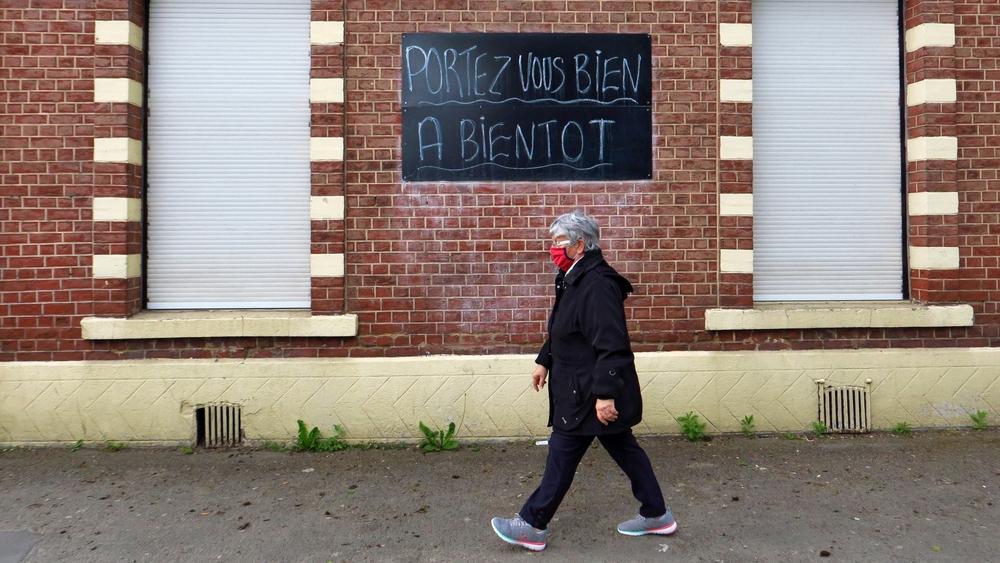 PORTEZ VOUS BIEN
A BIENTOT